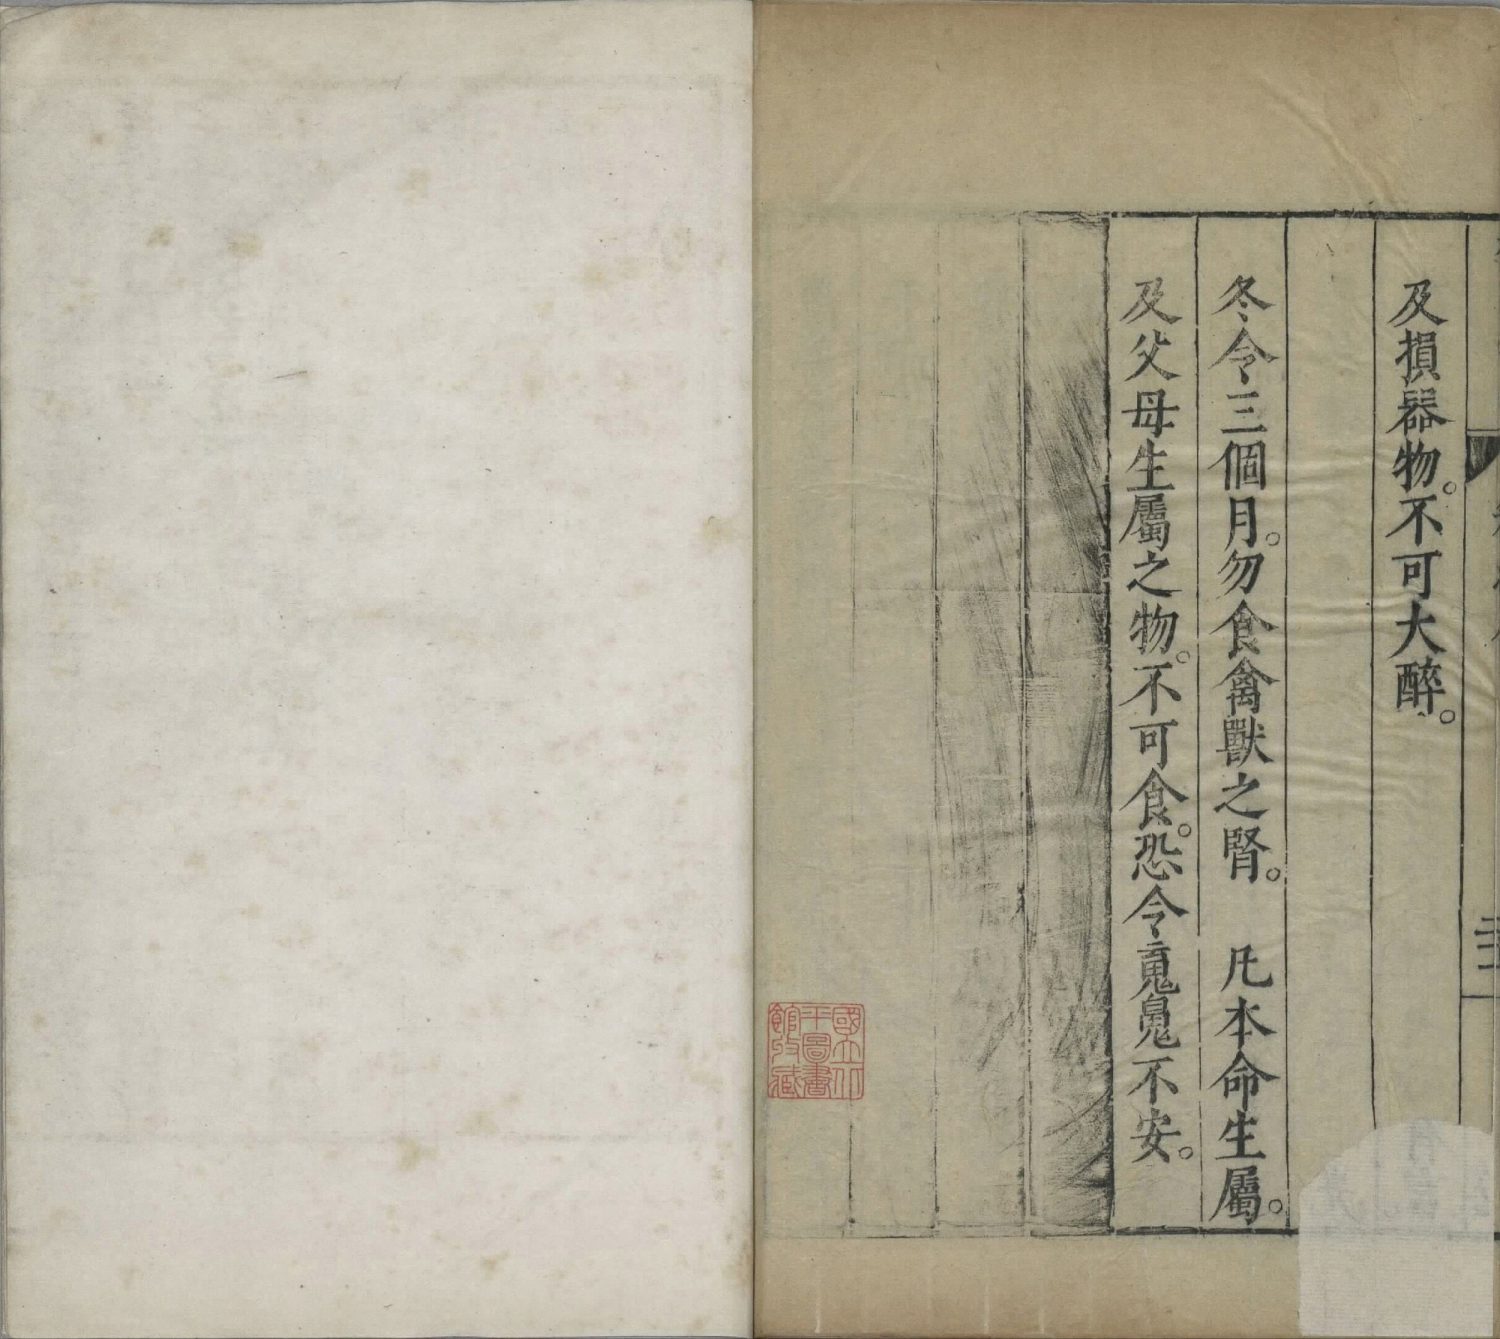 二二
及損器物。不可大醉。
冬令三個月。勿食禽獸之腎。　凡本命生屬。
及父母生屬之物。不可食。恐令䰟䰟不安。
國立北
平圖書
館收藏